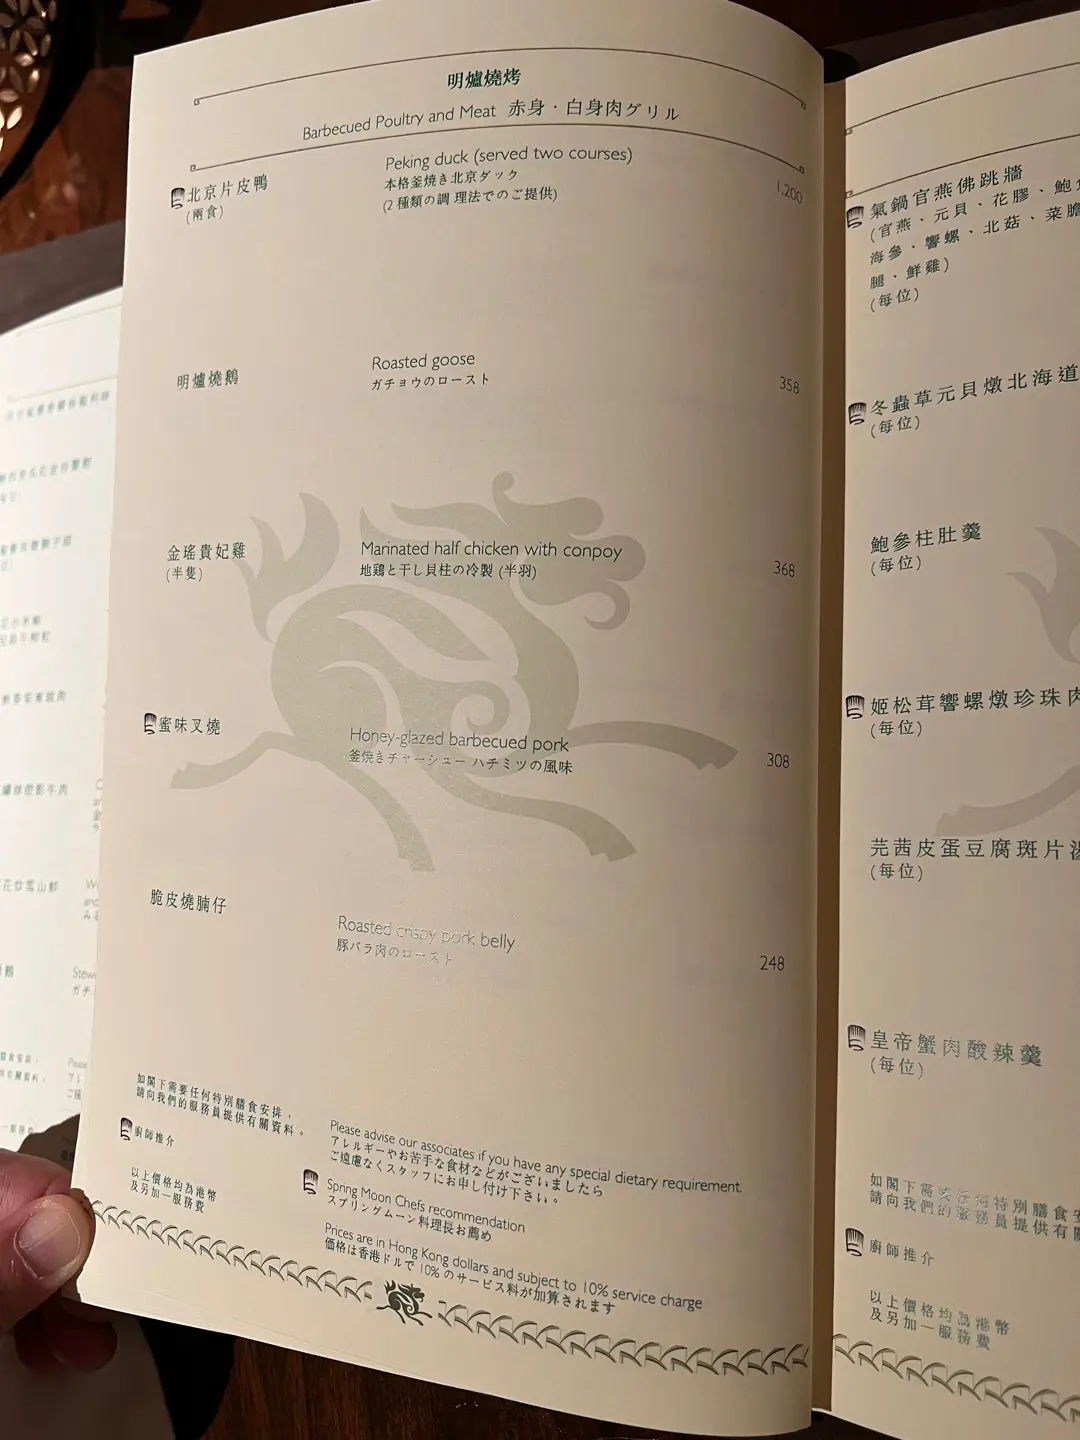 明爐燒烤
Barbecued Poultry and Meat 赤身・白身肉グリル
北京片皮鴨
(兩食)
Peking duck (served two courses)
本格釜焼き北京ダック
(2 種類の調 理法でのご提供)
1,200
明爐燒鵝
Roasted goose
ガチョウのロースト
358
金瑤貴妃雞
(半隻)
Marinated half chicken with conpoy
地鶏と干し貝柱の冷製 (半羽)
368
蜜味叉燒
Honey-glazed barbecued pork
釜焼きチャーシュー ハチミツの風味
308
脆皮燒腩仔
Roasted crispy pork belly
豚バラ肉のロースト
248
如閣下需要任何特別膳食安排，
請向我們的服務員提供有關資料。
Please advise our associates if you have any special dietary requirement.
アレルギーやお苦手な食材などがございましたら
ご遠慮なくスタッフにお申し付け下さい。
廚師推介
Spring Moon Chefs recommendation
スプリングムーン料理長お薦め
以上價格均為港幣
及另加一服務費
Prices are in Hong Kong dollars and subject to 10% service charge
価格は香港ドルで 10% のサービス料が加算されます
氣鍋官燕佛跳牆
(官燕、元貝、花膠、鮑
海參、響螺、北菇、菜膽
腿、鮮雞)
(每位)
冬蟲草元貝燉北海道
(每位)
鮑參柱肚羹
(每位)
姬松茸響螺燉珍珠肉
(每位)
芫茜皮蛋豆腐斑片湯
(每位)
皇帝蟹肉酸辣羹
(每位)
如閣下需要任何特別膳食安
請向我們的服務員提供有
廚師推介
以上價格均為港幣
及另加一服務費